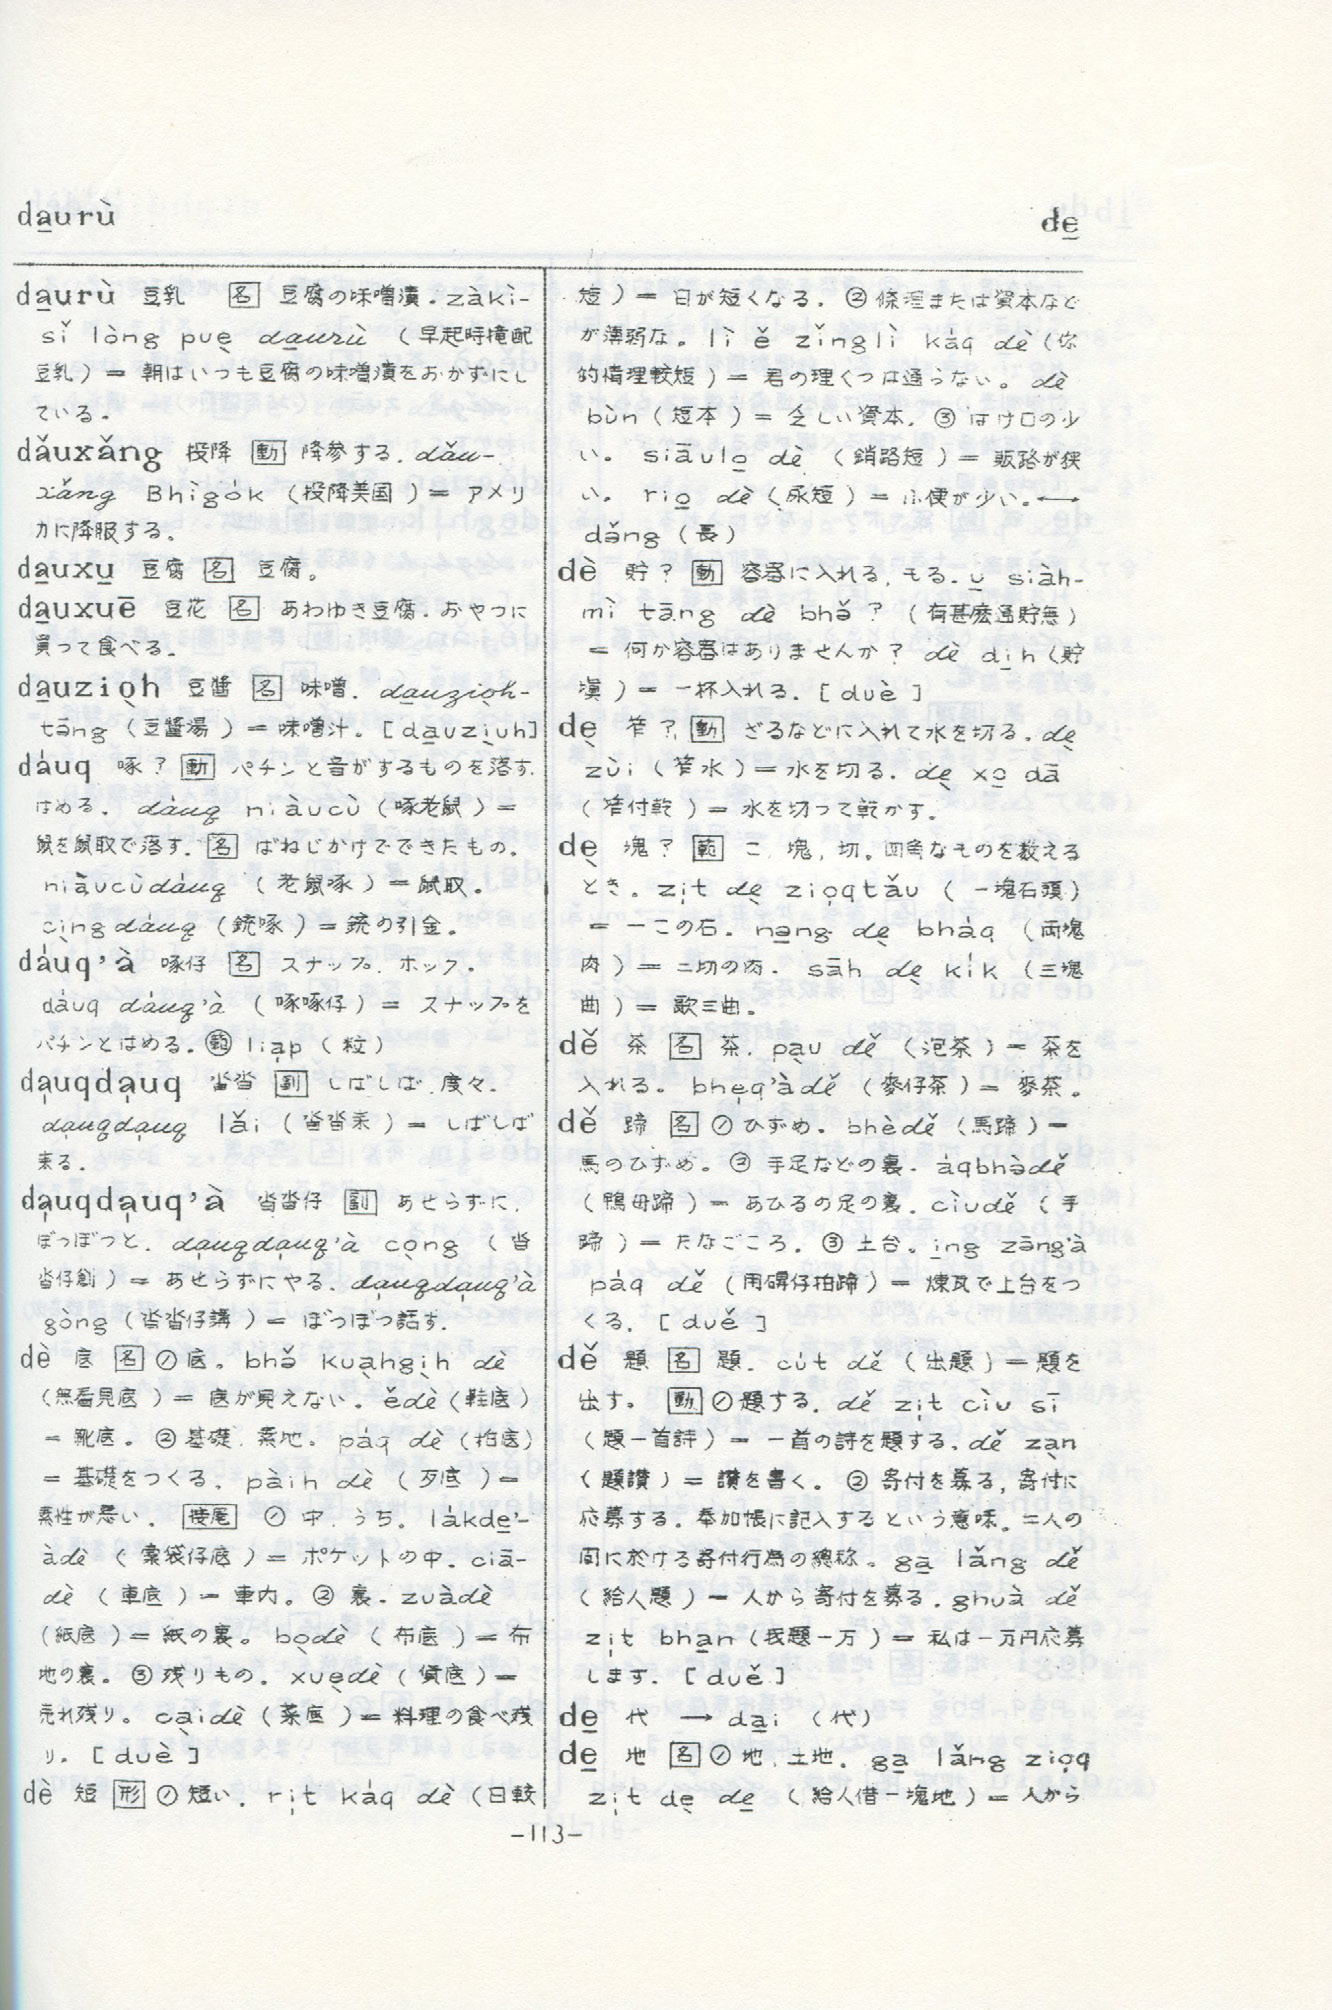 da̱urù
de̱
da̱urù 豆乳 名 豆腐の味噌漬. zàkì-
sǐ lòng puẹ da̱urù (早起時撞配
豆乳)= 朝はいつも豆腐の味噌漬をおかずにし
ている.
dǎuxǎng 投降 動 降参する. dǎu-
xǎng Bhìgȯk (投降美国)= アメリ
カに降服する.
da̱uxu̱ 豆腐 名 豆腐。
da̱uxuē 豆花 名 あわゆき豆腐. おやつに
買って食べる.
da̱uziọh 豆醬 名 味噌. da̱uziọh-
tāng (豆醬湯)= 味噌汁. [da̱uzịuh]
dȧuq 啄? 動 パチンと音がするものを落す.
はめる. dȧuq niàucù (啄老鼠)=
鼠を鼠取で落す. 名 ばねじかけでできたもの.
niàucùdȧuq (老鼠啄)=鼠取.
cịngdȧuq (銃啄)=銃の引金.
dȧuq'à 啄仔 名 スナップ. ホック.
dȧuq dȧuq'à (啄啄仔)= スナップを
パチンとはめる. 類 liạp (粒)
dạuqdạuq 沓沓 副 しばしば. 度々.
dạuqdạuq lǎi (沓沓来)= しばしば
来る.
dạuqdạuq'à 沓沓仔 副 あせらずに.
ぽつぽつと. dạuqdạuq'à cọng (沓
沓仔創)= あせらずにやる. dạuqdạuq'à
gòng (沓沓仔講)= ぼつぼつ話す.
dè 底 名 ① 底. bhǒ kuạhgịh dè
(無看見底)= 底が見えない. ědè (鞋底)
= 靴底. ② 基礎. 素地. pȧq dè (拍底)
= 基礎をつくる. pàih dè (歹底)=
素性が悪い. 接尾 ① 中. うち. lȧkde̱'-
àdè (橐袋仔底)= ポケットの中. ciā-
dè (車底)= 車内. ② 裏. zuàdè
(紙底)= 紙の裏. bọdè (布底)= 布
地の裏. ③ 残りもの. xuẹdè (貨底)=
売れ残り. cạidè (菜底)= 料理の食べ残
り. [duè]
dè 短 形 ① 短い. rịt kȧq dè (日較
短)= 日が短くなる. ② 條理または資本など
が薄弱な. lì ě zǐnglì kȧq dè (你
的情理較短)= 君の理くつは通らない. dè
bùn (短本)= 乏しい資本. ③ はけ口の少
い. siāulo̱ dè (銷路短)= 販路が狭
い. rio̱ dè (尿短)= 小便が少い. ←→
dǎng (長)
dè 貯? 動 容器に入れる, もる. u̱ siàh-
mì tāng dè bhǒ? (有甚麼通貯無)
= 何か容器はありませんか? dè dịh (貯
塡)= 一杯入れる. [duè]
dẹ 笮? 動 ざるなどに入れて水を切る. dẹ
zùi (笮水)= 水を切る. dẹ xo̱ dā
(笮付乾)= 水を切って乾かす.
dẹ 塊? 範 こ, 塊, 切. 四角なものを数える
とき. zịt dẹ ziọqtǎu (一塊石頭)
= 一この石. na̱ng dẹ bhȧq (両塊
肉)= 二切の肉. sāh dẹ kık (三塊
曲)= 歌三曲.
dě 茶 名 茶. pạu dě (泡茶)= 茶を
入れる. bhẹq'àdě (麥仔茶)= 麥茶.
dě 蹄 名 ① ひずめ. bhèdě (馬蹄)=
馬のひずめ. ② 手足などの裏. àqbhòdě
(鴨母蹄)= あひるの足の裏. cìudě (手
蹄)= たなごころ. ③ 土台. i̱ng zāng'à
pȧq dě (用磚仔拍蹄)= 煉瓦で土台をつ
くる. [duě]
dě 題 名 題. cu̇t dě (出題)= 題を
出す. 動 ① 題する. dě zịt cìu sī
(題一首詩)= 一首の詩を題する. dě zạn
(題讃)= 讃を書く. ② 寄付を募る, 寄付に
応募する. 奉加帳に記入するという意味. 二人の
間に於ける寄付行為の總称. ga̱ lǎng dě
(給人題)= 人から寄付を募る. ghuà dě
zịt bha̱n (我題一万)= 私は一万円応募
します. [duě]
de̱ 代 → da̱i (代)
de̱ 地 名 ① 地. 土地. ga̱ lǎng ziọq
zịt dẹ de̱ (給人借一塊地)= 人から
-113-